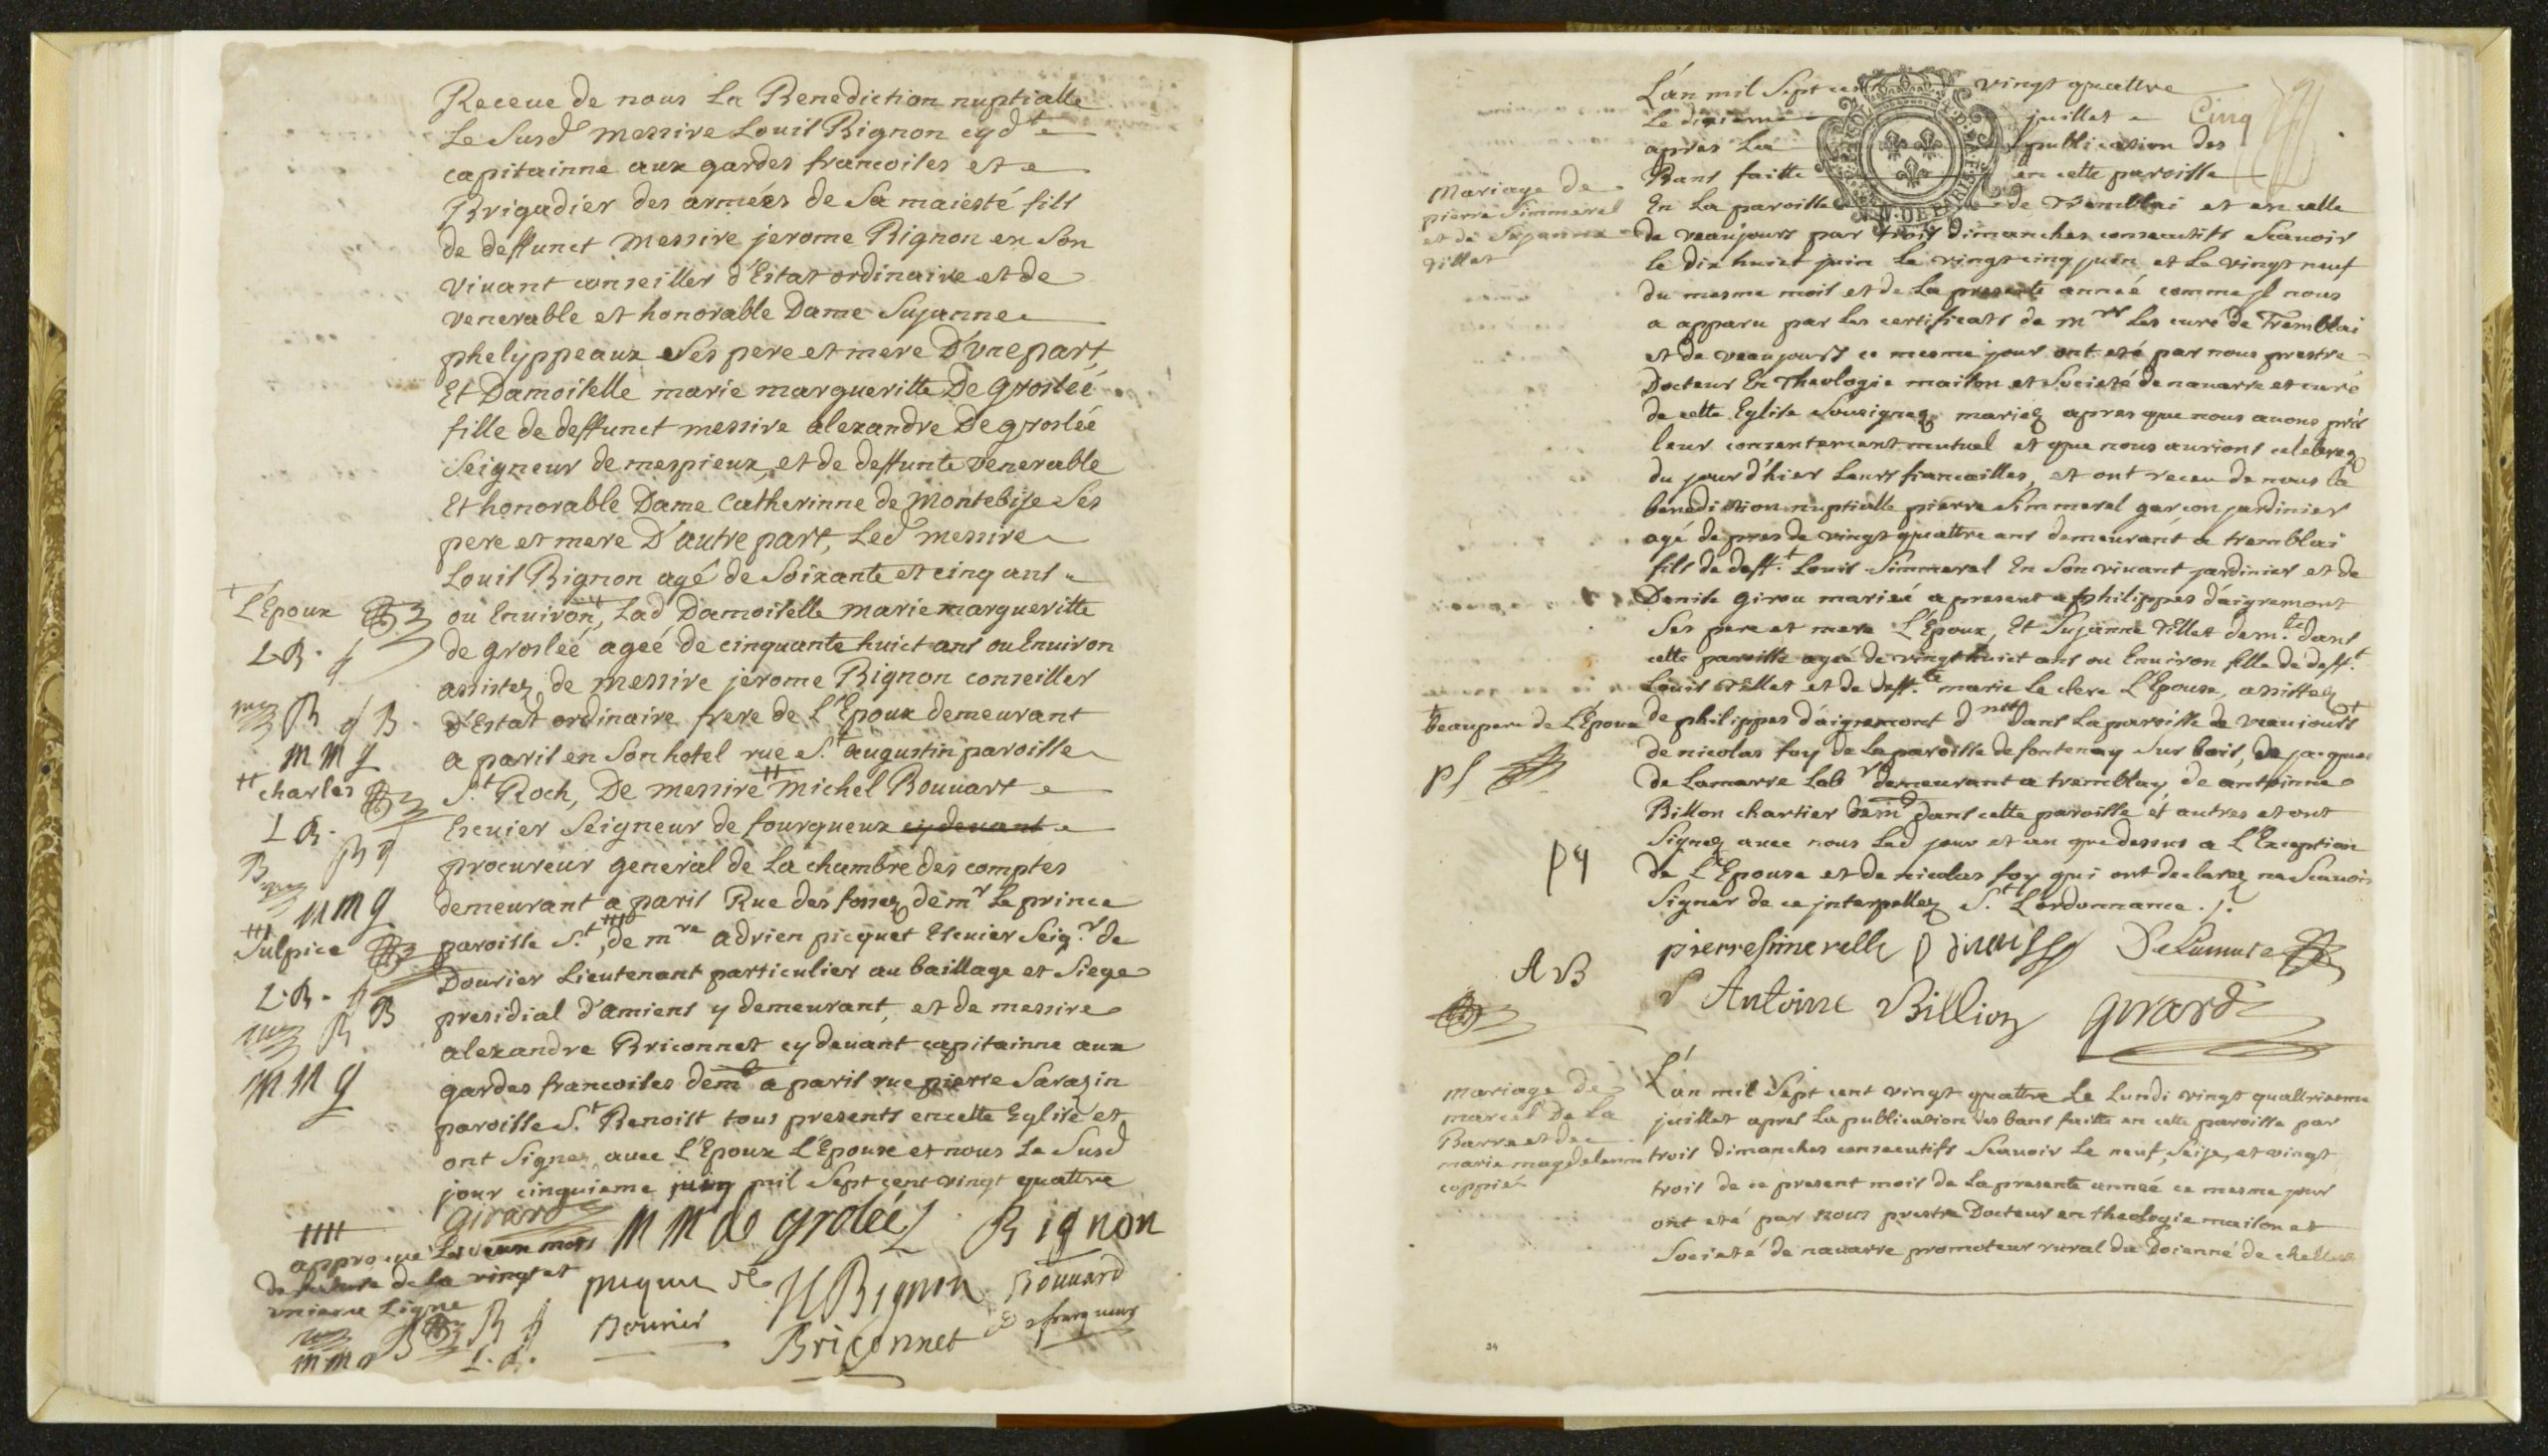 Receue de nous La Benediction nuptialle
Le Susd messire Louis Bignon cyd.te
capitainne aux gardes francoises et
Brigadier des armées de Sa maiesté fils
de deffunct messire jerome Bignon en Son
vivant conseiller d'Estat ordinaire et de
venerable et honorable Dame Suzanne
phelyppeaux Ses pere et mere D'vne part,
Et Damoiselle marie margueritte De Groslée
fille de deffunct messire alexandre De groslée
Seigneur de mespieux, et de deffunte venerable
Et honorable Dame Catherinne de Montebise Ses
pere et mere D'autre part, Led messire
Louis Bignon agé de Soixante et cinq ans
+ L'Epoux
ou Enuiron, Lad Damoiselle marie margueritte
L.B.
de groslée ageé de cinquante huict ans ou Enuiron
assistez de messire jerome Bignon conseiller
d'Estat ordinaire frere de L'Epoux demeurant
m m g
a paris en Son hotel rue S.t augustin paroisse
++ charles
S.t Roch, De messire ++ Michel Bouuart
L B.
Escuier Seigneur de fourqueux cy deuant
procureur general de La chambre des comptes
m m g
demeurant a paris Rue des fossez de m.r Le prince
+++ Sulpice
paroisse S.t, de m.re adrien picquet Escuier Seig.r de
L.B.
Dourier Lieutenant particulier au baillage et Siege
presidial d'amiens y demeurant, et de messire
alexandre Briconnet cy deuant capitainne aux
m m g
gardes francoises dem.t a paris rue pierre Sarazin
paroisse S.t Benoist tous presents en cette Eglise et
ont Signez auec L'Epoux L'Epouse et nous Le Susd
jour cinquieme juin mil Sept cent vingt quattre
Girard M M de grolée L Bignon
++++ approuue Les deux mots
de rature de la vingt et
vnieme Ligne
picquet de Dourier
H Bignon
Bouuard de fourqueux
Briçonnet
m m g L.B.
L'an mil Sept cent vingt quattre
Le dixieme juillet Cinq
apres La publication des
Bans faitte en cette paroisse
Mariage de
pierre Simmerel
et de Suzanne
Tillet
En La paroisse de Tremblai et en celle
de veaujours par trois dimanches consecutifs Scauoir
le dix huict juin Le vingt cinq juin et Le vingt neuf
du mesme mois et de La presente année comme Jl nous
a apparu par Les certificats de m.rs Les curé de Tremblai
et de veaujours ce mesme jour ont eté par nous prestre
Docteur En Theologie maison et Societé de nauarre et curé
de cette Eglise Sousignez mariez apres que nous auons pris
leur consentement mutuel et que nous aurions celebrez
du jour d'hier Leurs fiancailles, et ont receu de nous la
benediction nuptialle pierre Simmerel garcon jardinier
agé de pres de vingt quattre ans demeurant a tremblai
fils de deff.t Louis Simmerel En Son viuant jardinier et de
Denise Girou marieé a present a philippes daigremont
Ses pere et mere L'Epoux, Et Suzanne Tillet dem.te dans
cette paroisse ageé de vingt huict ans ou Enuiron fille de deff.t
Louis Tillet et de deff.te marie Le clerc L'Epouse, assistez
+ beaupere de L'Epoux
de philippes daigremont d dans La paroisse de veaujours +
de nicolas foy de La paroisse de fontenay Sur bois, de jacques
pS
de Lamarre Lab.r demeurant a tremblay, de antoinne
Billon chartier dem.t dans cette paroisse et autres et ont
Signez auec nous Led jour et an que dessus a L'Exception
de L'Epouse et de nicolas foy qui ont declarez ne Scauoir
Signer de ce jnterpellez S.t L'ordonnance ./.
pierre simerelle
A B
Antoine Billion Girard
mariage de
marcel De La
Barre et de
marie magdelenne
coppié
L'an mil Sept cent vingt quattre Le Lundi vingt quattrieme
juillet apres La publication des bans faitte en cette paroisse par
trois dimanches consecutifs Scauoir Le neuf, Seize, et vingt
trois de ce present mois de La presente année ce mesme jour
ont eté par nous prestre Docteur en theologie maison et
Societé de nauarre promoteur rural du doienné de chelles